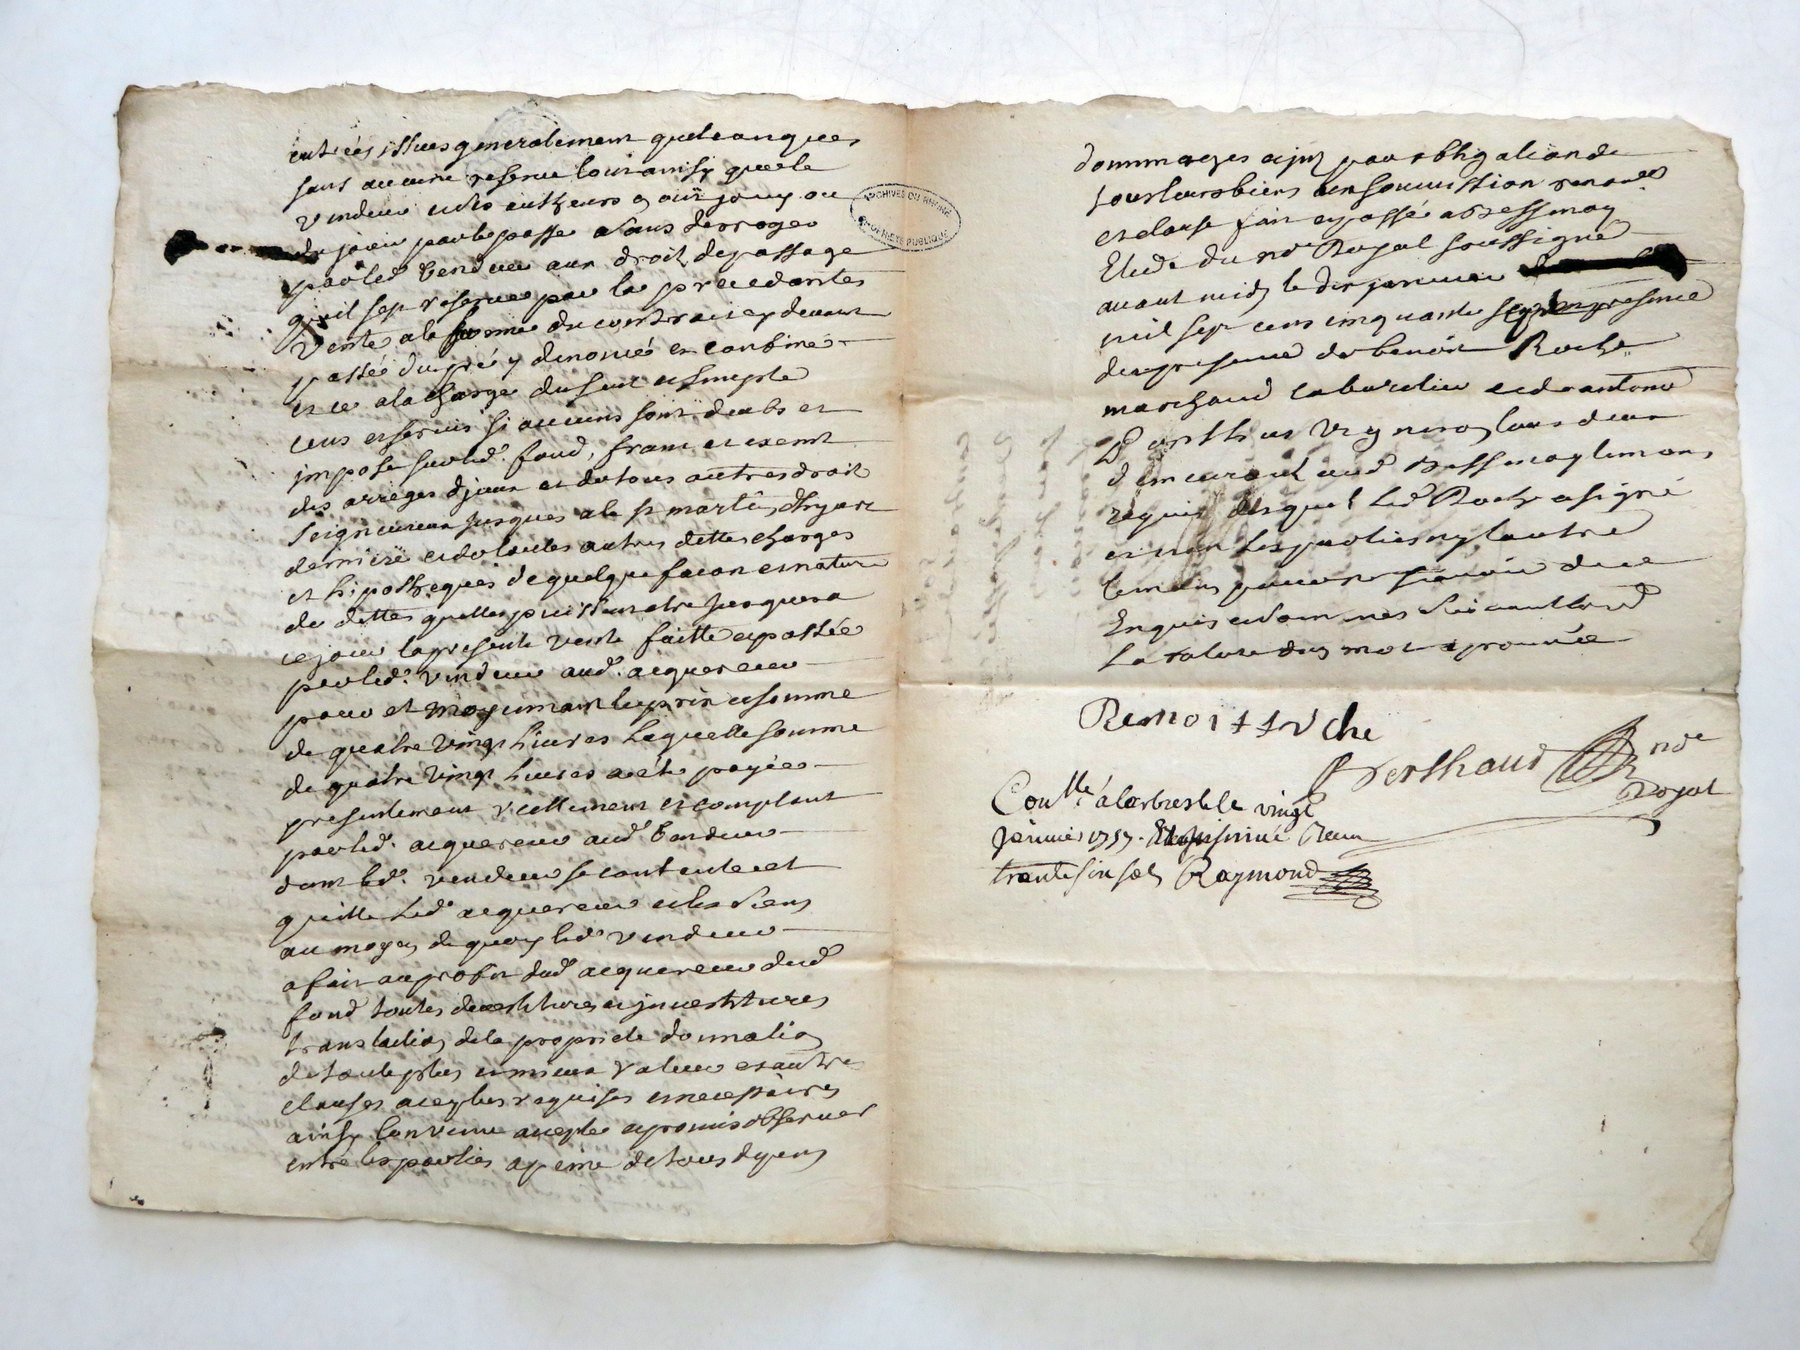 entrées issues generalement quelconques
sans aucune reserve tout ainsy que le
vendeur et ses autheurs en ont jouy ou
du jouir par le passé sans deroger
par led. vendeur aux droit de passage
qu'il sest reservé par la precedante
vente a la forme du contrat cy devant
passée du pré y denoncé et confiné
et ce a la charge du seul et simple
cens et servis si aucuns sont deubs et
imposé sur led. fond, franc et exempt
des arreges d'jceux et de tous autres droit
seigneuriaux jusques a la st martin d'hyvert
derniere et de toutes autres dettes charges
et hipotheques de quelque facon et nature
de dettes quelles puissent etre jusques a
ce jour la presente vente faitte et passée
par led. vendeur aud. acquereur
pour et moyennant le prix et somme
de quatre vingt livres laquelle somme
de quatre vingt livres a été payée
presentement reellement et comptant
par led. acquereur aud. vendeur
dont led. vendeur se contente et
quitte led. acquereur et les siens
au moyen de quoy led. vendeur
a fait au profit dud. acquereur dud.
fond toutes devestitures et jnvestitures
translation de la proprieté donnation
de toute plus et mieux value et autres
clauses a ce plus requises et necessaires
ainsy convenu accepté et promis observer
entre les parties a peine de tous depens
dommages et jnts par obligation de
tous leurs biens aux soumission renon.ons
et clause fait et passé a Bessenay
Etude du no.re Royal soussigné
avant midy le dix janvier
mil sept cens cinquante sept en presence
de benoit Roche
marchand cabaretier et de antoine
vigneron tous deux
demeurant aud. Bessenay temoins
requis desquel led. Roche a signé
et non les parties ny lautre
temoins pour ne scavoir de ce
Enquis et sommés suivant lord.
la rature dun mot aprouvée
Benoit Roche
Berthaud no.re
Royal
Con.llé a larbresle le vingt
janvier 1757. Reçu
trente six sols Raymond
ARCHIVES DU RHÔNE
PROPRIÉTÉ PUBLIQUE